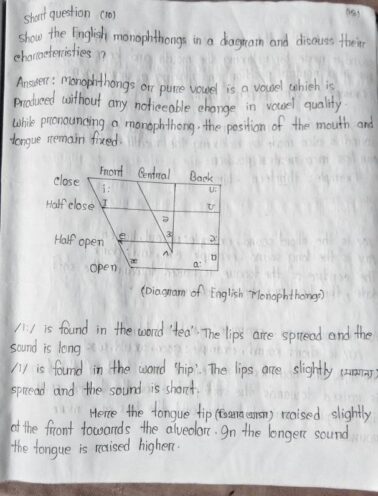 Short question (10)
Show the English monophthongs in a diagram and discuss their
characteristics ?
Answer: Monophthongs or pure vowel is a vowel which is
Produced without any noticeable change in vowel quality.
While pronouncing a monophthong, the position of the mouth and
tongue remain fixed.
Front Central Back
Close i: u:
Half close I ʊ
ə
Half open e 3 ɔ
ʌ ɒ
Open æ a:
(Diagram of English Monophthongs)
/i:/ is found in the word 'tea'. The lips are spread and the
sound is long
/I/ is found in the word 'hip'. The lips are slightly
spread and the sound is short.
Here the tongue tip raised slightly
at the front towards the alveolar. In the longer sound
the tongue is raised higher.